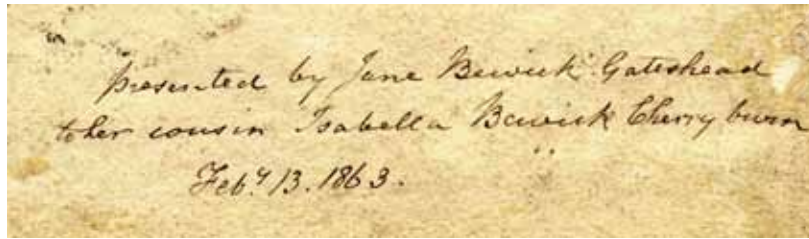 presented by Jane Bewick Gateshead
to her cousin Isabella Bewick Cherryburn
Feby 13. 1863.